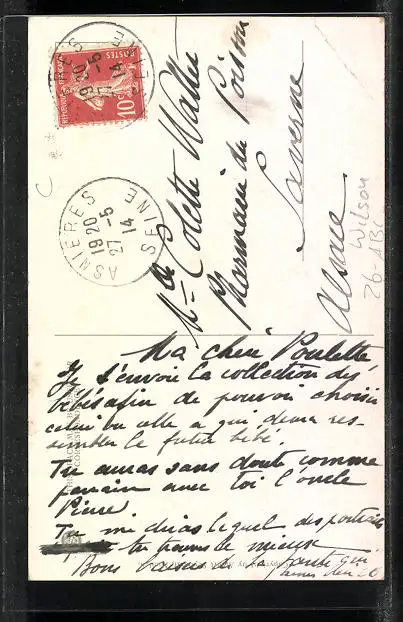 ASNIERES
19 20
27 -5
14
SEINE
REPUBLIQUE FRANÇAISE
POSTES
10c
Mlle Colette
Pharmacie du Poisson
Saverne
Alsace
Wilson
26-AB
Ma chère Poulette,
Je t'envoie la collection des
bébés afin de pouvoir choisir
celui ou celle à qui devra res-
sembler le futur bébé.
Tu auras sans doute comme
parrain avec toi l'oncle
Pierre
Tu me diras lequel des portraits
tu trouves le mieux
Bons baisers de la qui